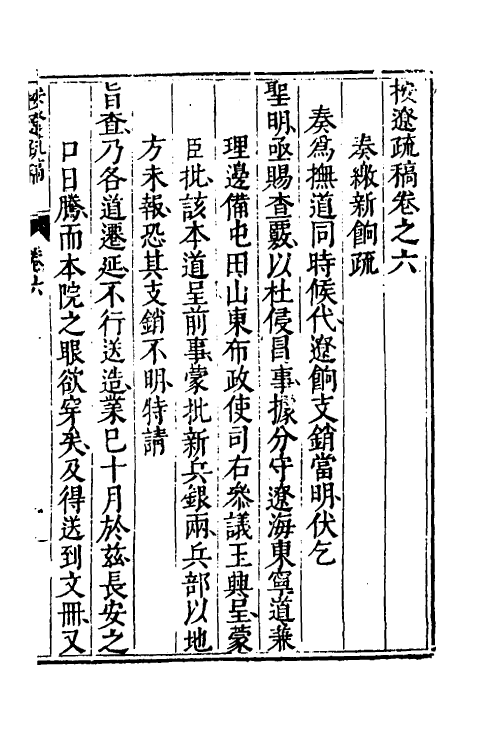 按遼疏稿卷之六
奏繳新餉疏
奏爲撫道同時候代遼餉支銷當明伏乞
聖明亟賜查覈以杜侵冒事據分守遼海東寧道兼
理邊備屯田山東布政使司右叅議王興呈蒙
臣批該本道呈前事蒙批新兵銀兩兵部以地
方未報恐其支銷不明特請
旨查乃各道遷延不行送造業已十月於兹長安之
口日騰而本院之眼欲穿矣及得送到文冊又
按遼疏稿
卷六
一